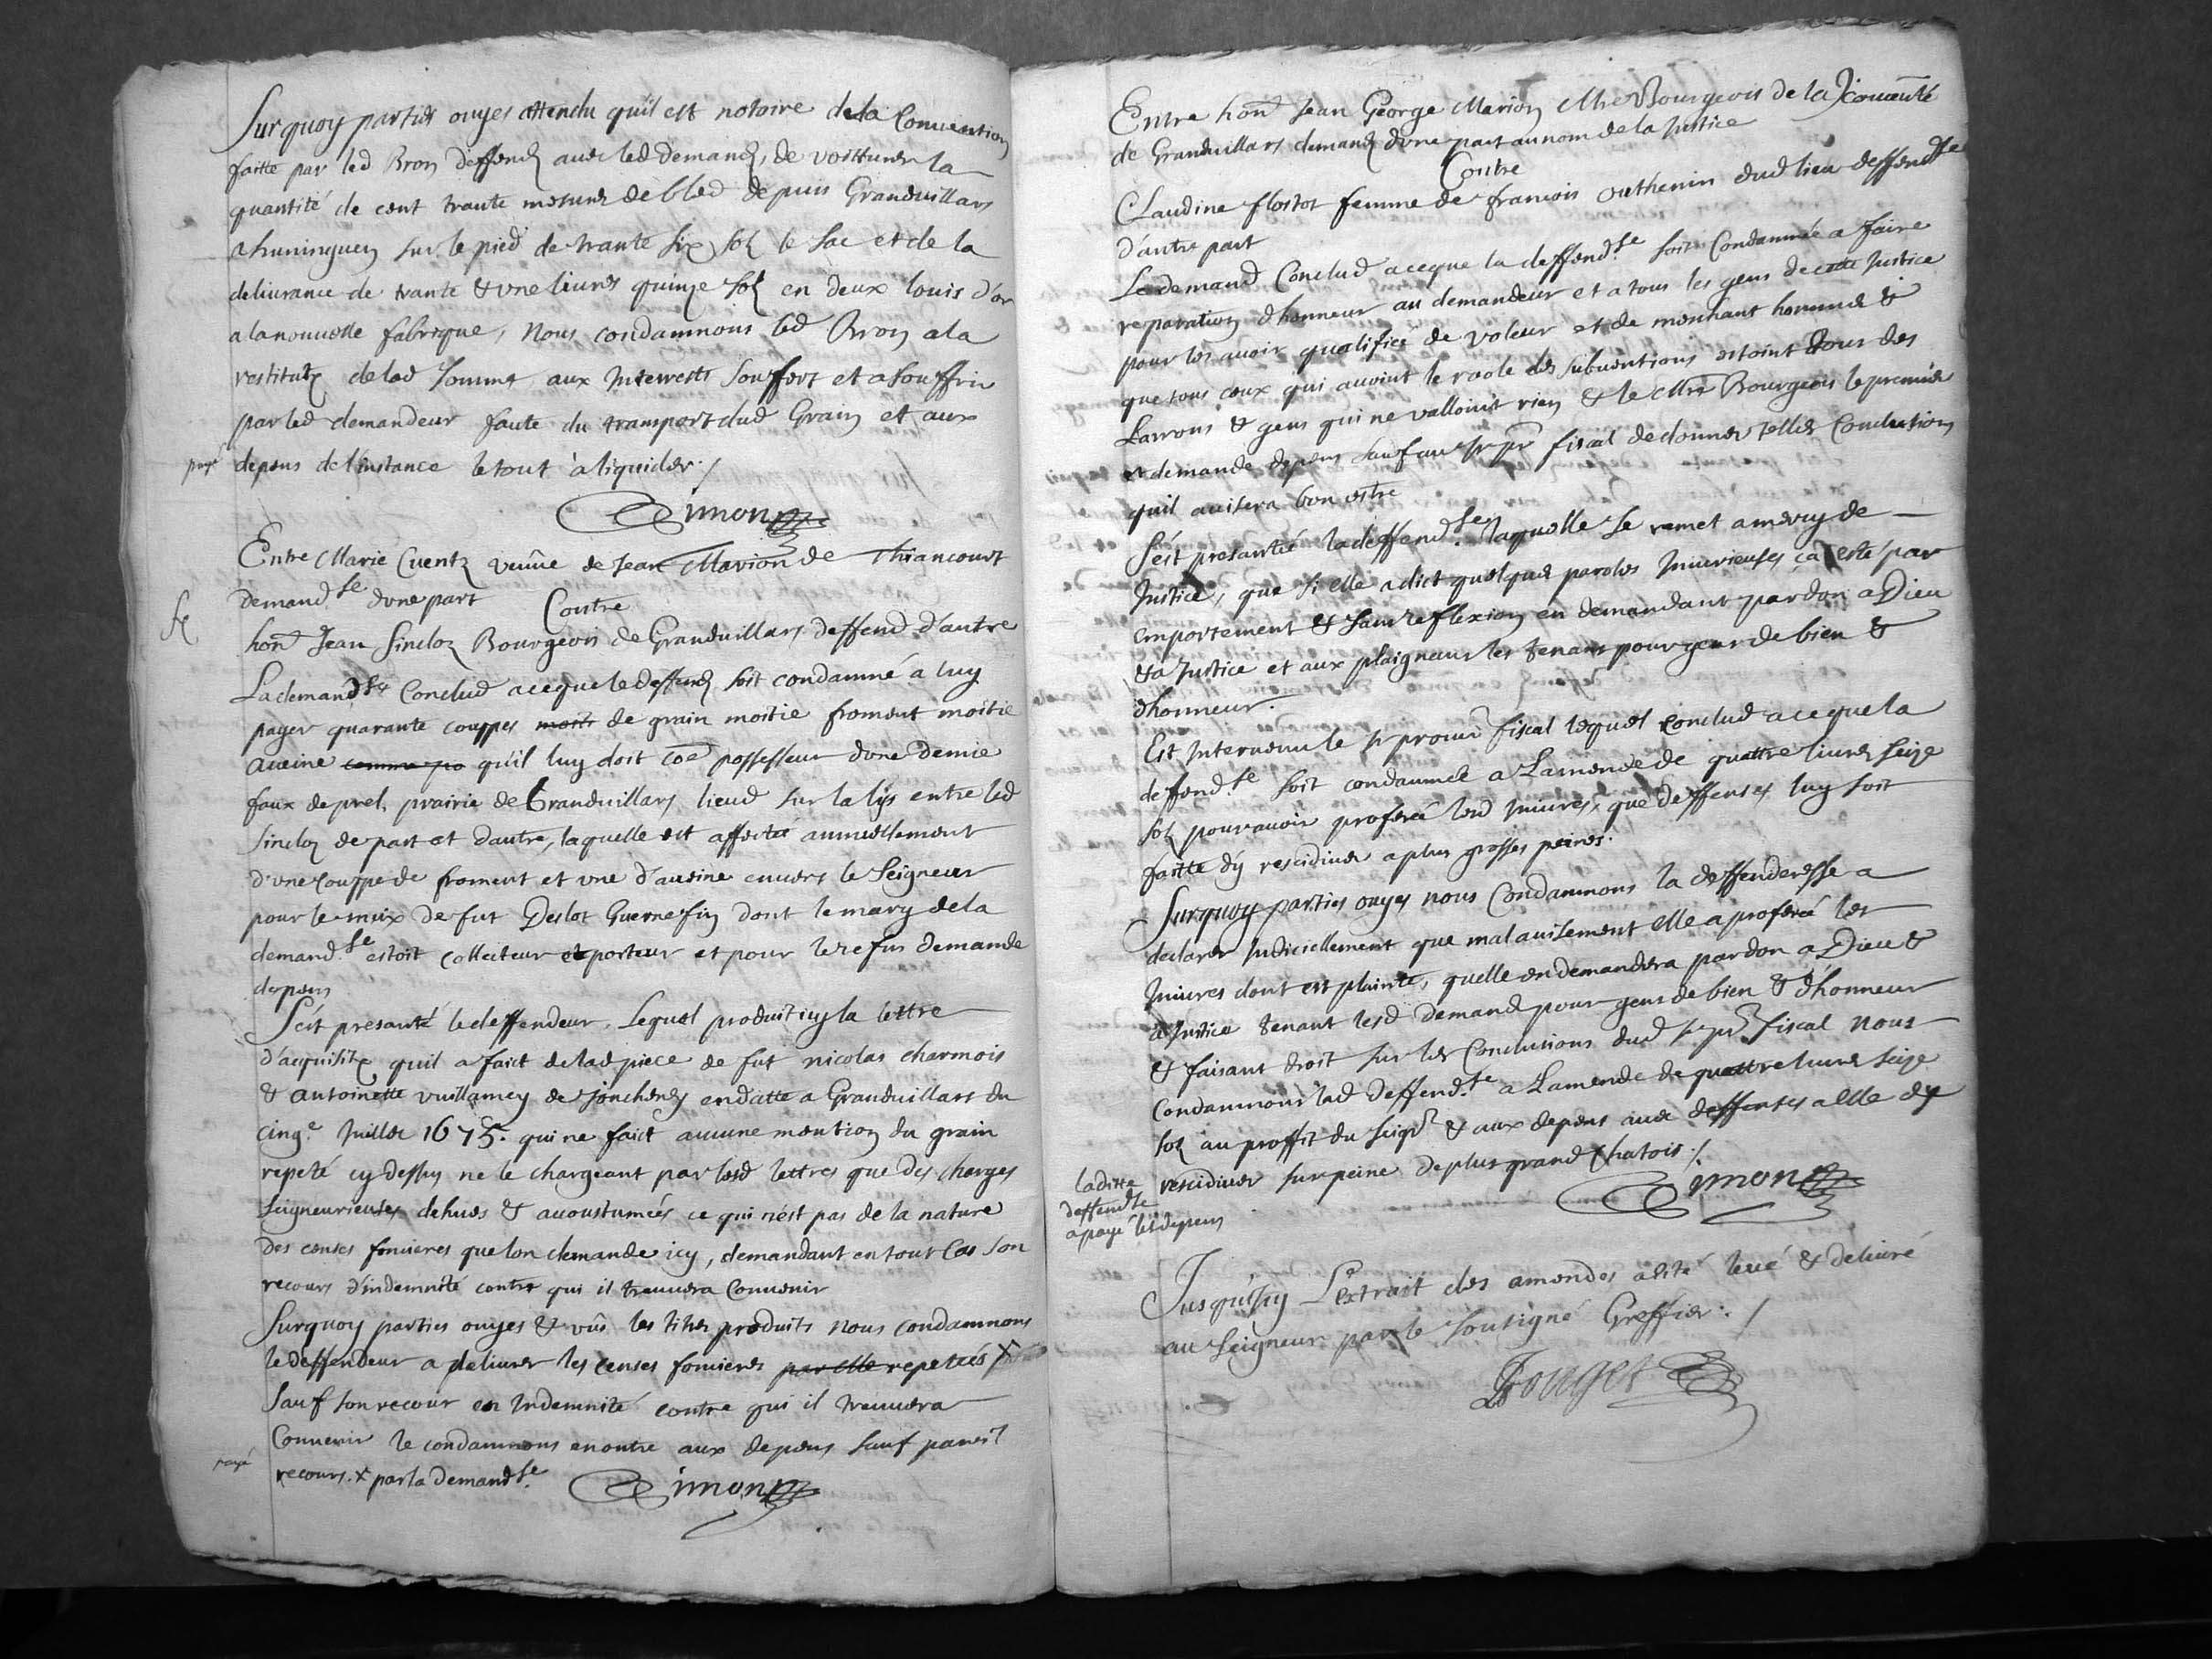 Surquoy parties ouyes attendu qu'il est notoire dela Convention
faitte par led Bron deffend avec led demand, de voitturer la
quantité de cent trante mesures de bled depuis Granduillars
a huninguen sur le pied de trante six sols le sac et de la
deliurance de trante & vne liures quinze sols en deux louis d'or
a la nouuelle fabrique, Nous condamnons led Bron a la
restitutn delad somme aux Interrests souffert et a souffrir
par led demandeur faute du transport dud Grain et aux
payé
depens de l'instance le tout à liquider ./
Simon
Entre Marie Cuentz veuue de Jean Marion de Thiancourt
Demand.se dvne part Contre
hon Jean Sincloz Bourgeois de Granduillars deffend d'autre
La demand.se Conclud aceque le deffend soit condamné a luy
payer quarante couppes de grain moitie froment moitie
aueine qu'il luy doit coe possesseur dvne demie
faux de prel, prairie de Granduillars lieud sur la lys entre led
Sincloz de part et dautre, laquelle est affectée annuellement
d'vne couppe de froment et vne d'aueine enuers le Seigneur
pour le mix de fut Deslot Guernefin dont le mary dela
demand.se estoit collecteur et porteur et pour le refus demande
depens
S'est presanté le deffendeur, Lequel produit icy la lettre
d'acquisitn quil a faict delad piece de fut nicolas charmois
& antoinette vuillamey de Jonchery endatte a Granduillars du
cinqe Juillet 1675. qui ne faict aucune mention du grain
repeté cy dessus ne le chargeant par lesd lettres que des charges
seigneurieuses dehues & accoustumées ce qui n'est pas de la nature
des censes foncieres que lon demande icy, demandant en tout cas son
recours d'indemnité contre qui il trouuera Conuenir
Surquoy parties ouyes & vûs les titres produits nous condamnons
le deffendeur a deliurer les censes foncieres par elle repetées x
Sauf son recour en Indemnité contre qui il trouuera
Conuenir le condamnons en outre aux depens sauf pareil
payé
recours. x par la demand.se
Simon
Entre hon Jean George Marion Mre Bourgeois de la Comunté
de Granduillars demand dvne part au nom de la Justice
Contre
Claudine flostot femme de francois outhenin dud lieu deffendse
d'autre part
Le demand Conclud aceque la deffend.se soit Condamnée a faire
reparation dhonneur au demandeur et a tous les gens de cette Justice
pour les auoir qualifiée de voleur et de meschant hommes &
que tous ceux qui auoint le roole des subuentions estoint tous des
Larrons & gens qui ne valloint rien & le Mre Bourgeois le premier
et demande depens sauf au Sr pr fiscal de donner telles Conclusions
quil auisera bon estre
S'est presantée la deffend.se laquelle se remet a mercy de
Justice, que si elle a dict quelques paroles Iniurieuses, ca esté par
emportement & sans reflexion en demandant pardon a Dieu
& a Justice et aux plaignans les tenans pour gens de bien &
dhonneur.
Est Interuenu le Sr procur fiscal lequel conclud aceque la
deffend.se soit condamnée a Lamende de quattre liures seize
sols pour auoir proferé lesd Iniures, que deffenses luy soit
faitte dy rescidiuer a plus grosses peines.
Surquoy parties ouyes nous Condamnons la deffenderesse a
declarer Judiciellement que malauisement elle a proferé les
Iniures dont est plainte, quelle en demandera pardon a Dieu &
a Justice tenant lesd demand pour gens de bien & d'honneur
& faisant droit sur les Conclusions dud Sr pr fiscal nous
Condamnons lad deffend.se a Lamende de quattre liures seize
sols au proffit du seigr & aux depens auec deffenses a elle dy
rescidiuer sur peine de plus grand Chatois ./
laditte
deffendse
a payé les depens
Simon
Jusqu'icy L'extrait des amendes a esté leué & deliuré
au Seigneur par le soussigné Greffier ./
Rouget